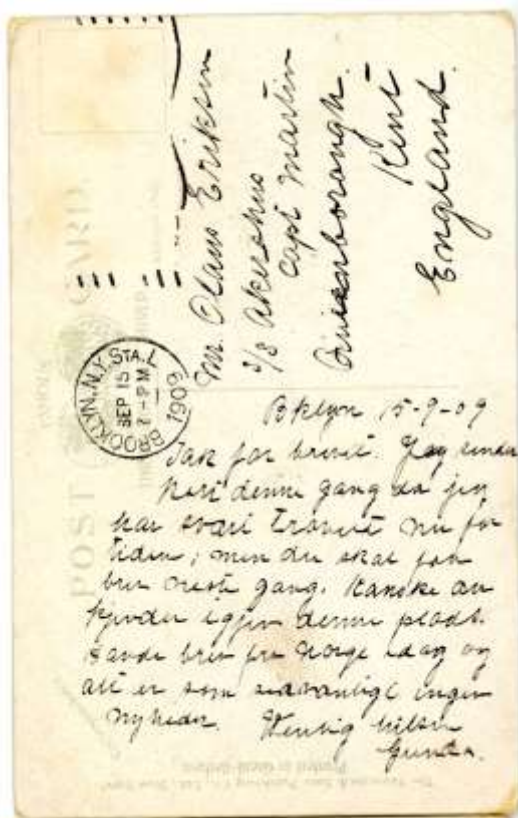 BROOKLYN, N.Y. STA. L
SEP 15
7-PM
1909
Mr. Olaus Eriksen
S/S Akershus
Capt Martin
Queenborough.
Kent
England.
Bklyn 15-9-09
Tak for brevet. Jeg sender
kort denne gang da jeg
har svart travelt nu for
tiden; men du skal faa
brev neste gang. Kanske du
kjender igjen denne plads.
Havde brev fra Norge idag og
alt er som sedvanligt ingen
nyheder. Venlig hilsen
Gunda.
POST CARD.
Printed in Great Britain.